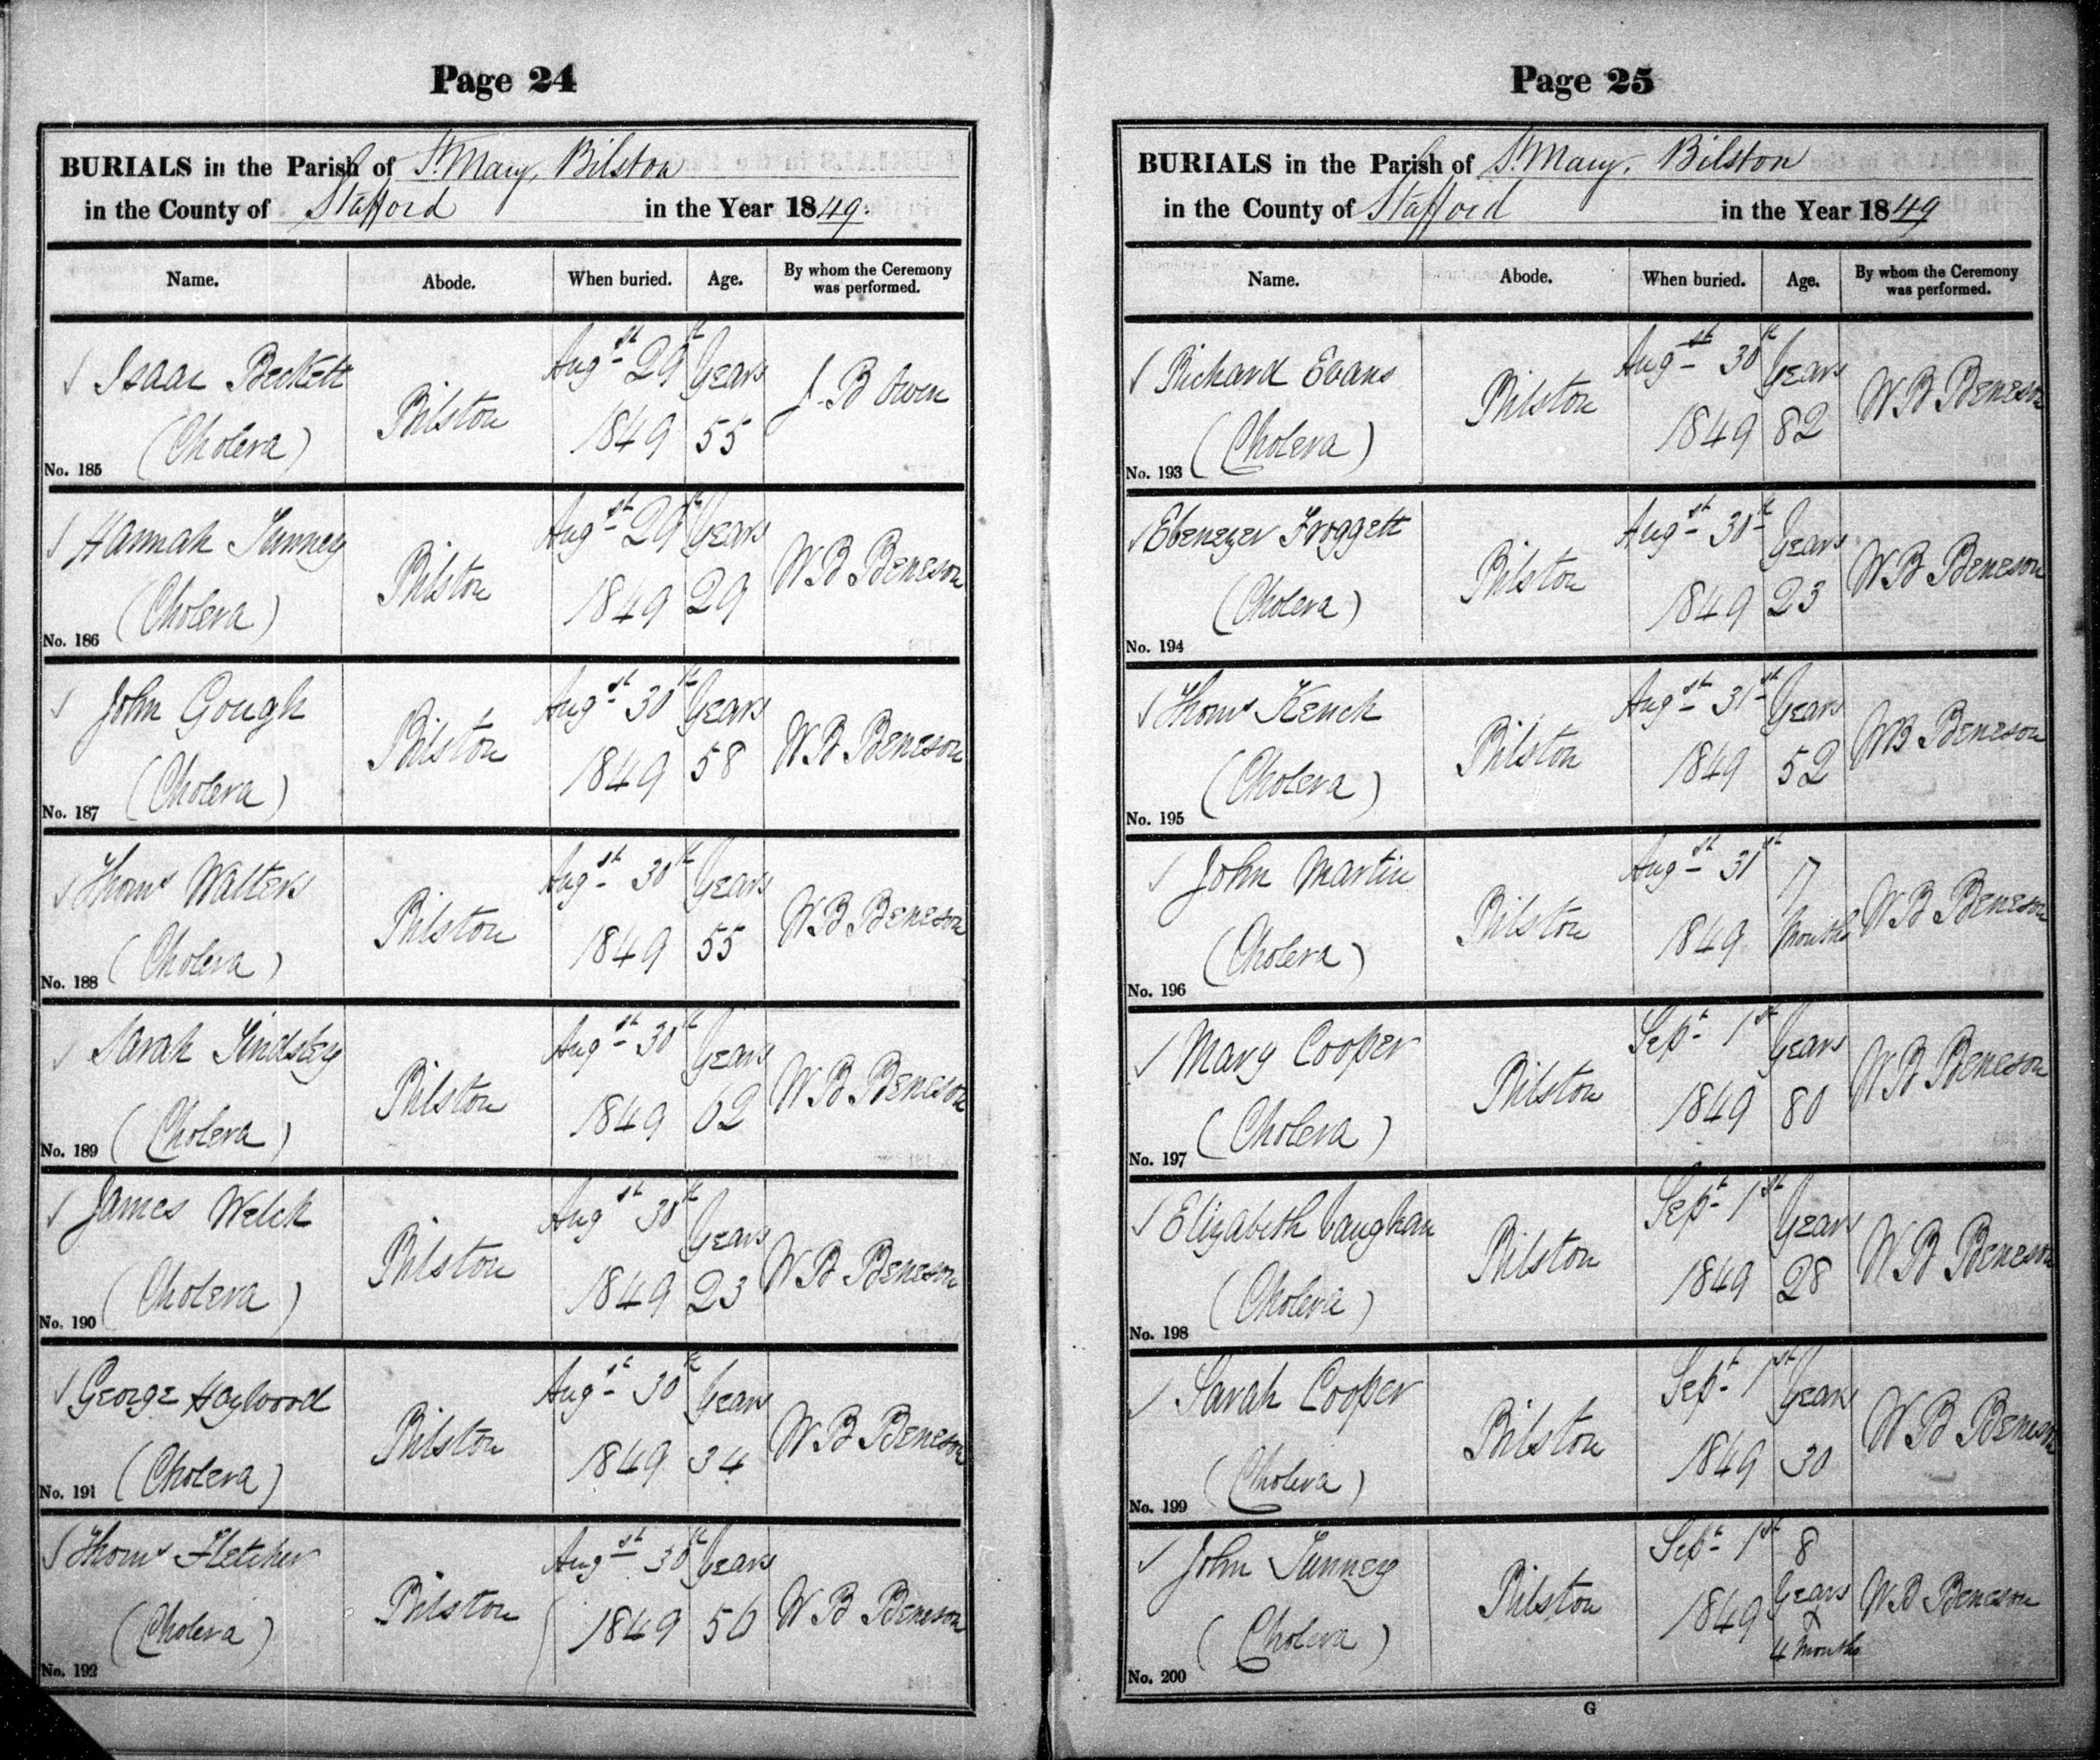 Page 24
BURIALS in the Parish of St Mary, Bilston
in the County of Stafford in the Year 1849.
Name. Abode. When buried. Age. By whom the Ceremony was performed.
Isaac Beckett Augst 29th Years
Bilston J. B Owen
(Cholera) 1849 55
No. 185
Hannah Tunney Augst 29th Years
Bilston W B Beneson
(Cholera) 1849 29
No. 186
John Gough Augst 30th Years
Bilston W B Beneson
(Cholera) 1849 58
No. 187
Thoms Walters Augst 30th Years
Bilston W B Beneson
(Cholera) 1849 55
No. 188
Sarah Augst 30th Years
Bilston W B Beneson
(Cholera) 1849 62
No. 189
James Welch Augst 30th Years
Bilston W B Beneson
(Cholera) 1849 23
No. 190
George Haywood Augst 30th Years
Bilston W B Beneson
(Cholera) 1849 34
No. 191
Thoms Fletcher Augst 30th Years
Bilston W B Beneson
(Cholera) 1849 56
No. 192
Page 25
BURIALS in the Parish of St Mary, Bilston
in the County of Stafford in the Year 1849
Name. Abode. When buried. Age. By whom the Ceremony was performed.
Richard Evans Augst 30th Years
Bilston W B Beneson
(Cholera) 1849 82
No. 193
Ebenezer Froggett Augst 30th Years
Bilston W B Beneson
(Cholera) 1849 23
No. 194
Thoms Kench Augst 31st Years
Bilston W B Beneson
(Cholera) 1849 52
No. 195
John Martin Augst 31st 17
Bilston W B Beneson
(Cholera) 1849 Months
No. 196
Mary Cooper Sept 1st Years
Bilston W B Beneson
(Cholera) 1849 80
No. 197
Elizabeth Vaughan Sept 1st Years
Bilston W B Beneson
(Cholera) 1849 28
No. 198
Sarah Cooper Sept 1st Years
Bilston W B Beneson
(Cholera) 1849 30
No. 199
John Tunney Sept 1st 8
Bilston Years W B Beneson
(Cholera) 1849 & 4 Months
No. 200
G